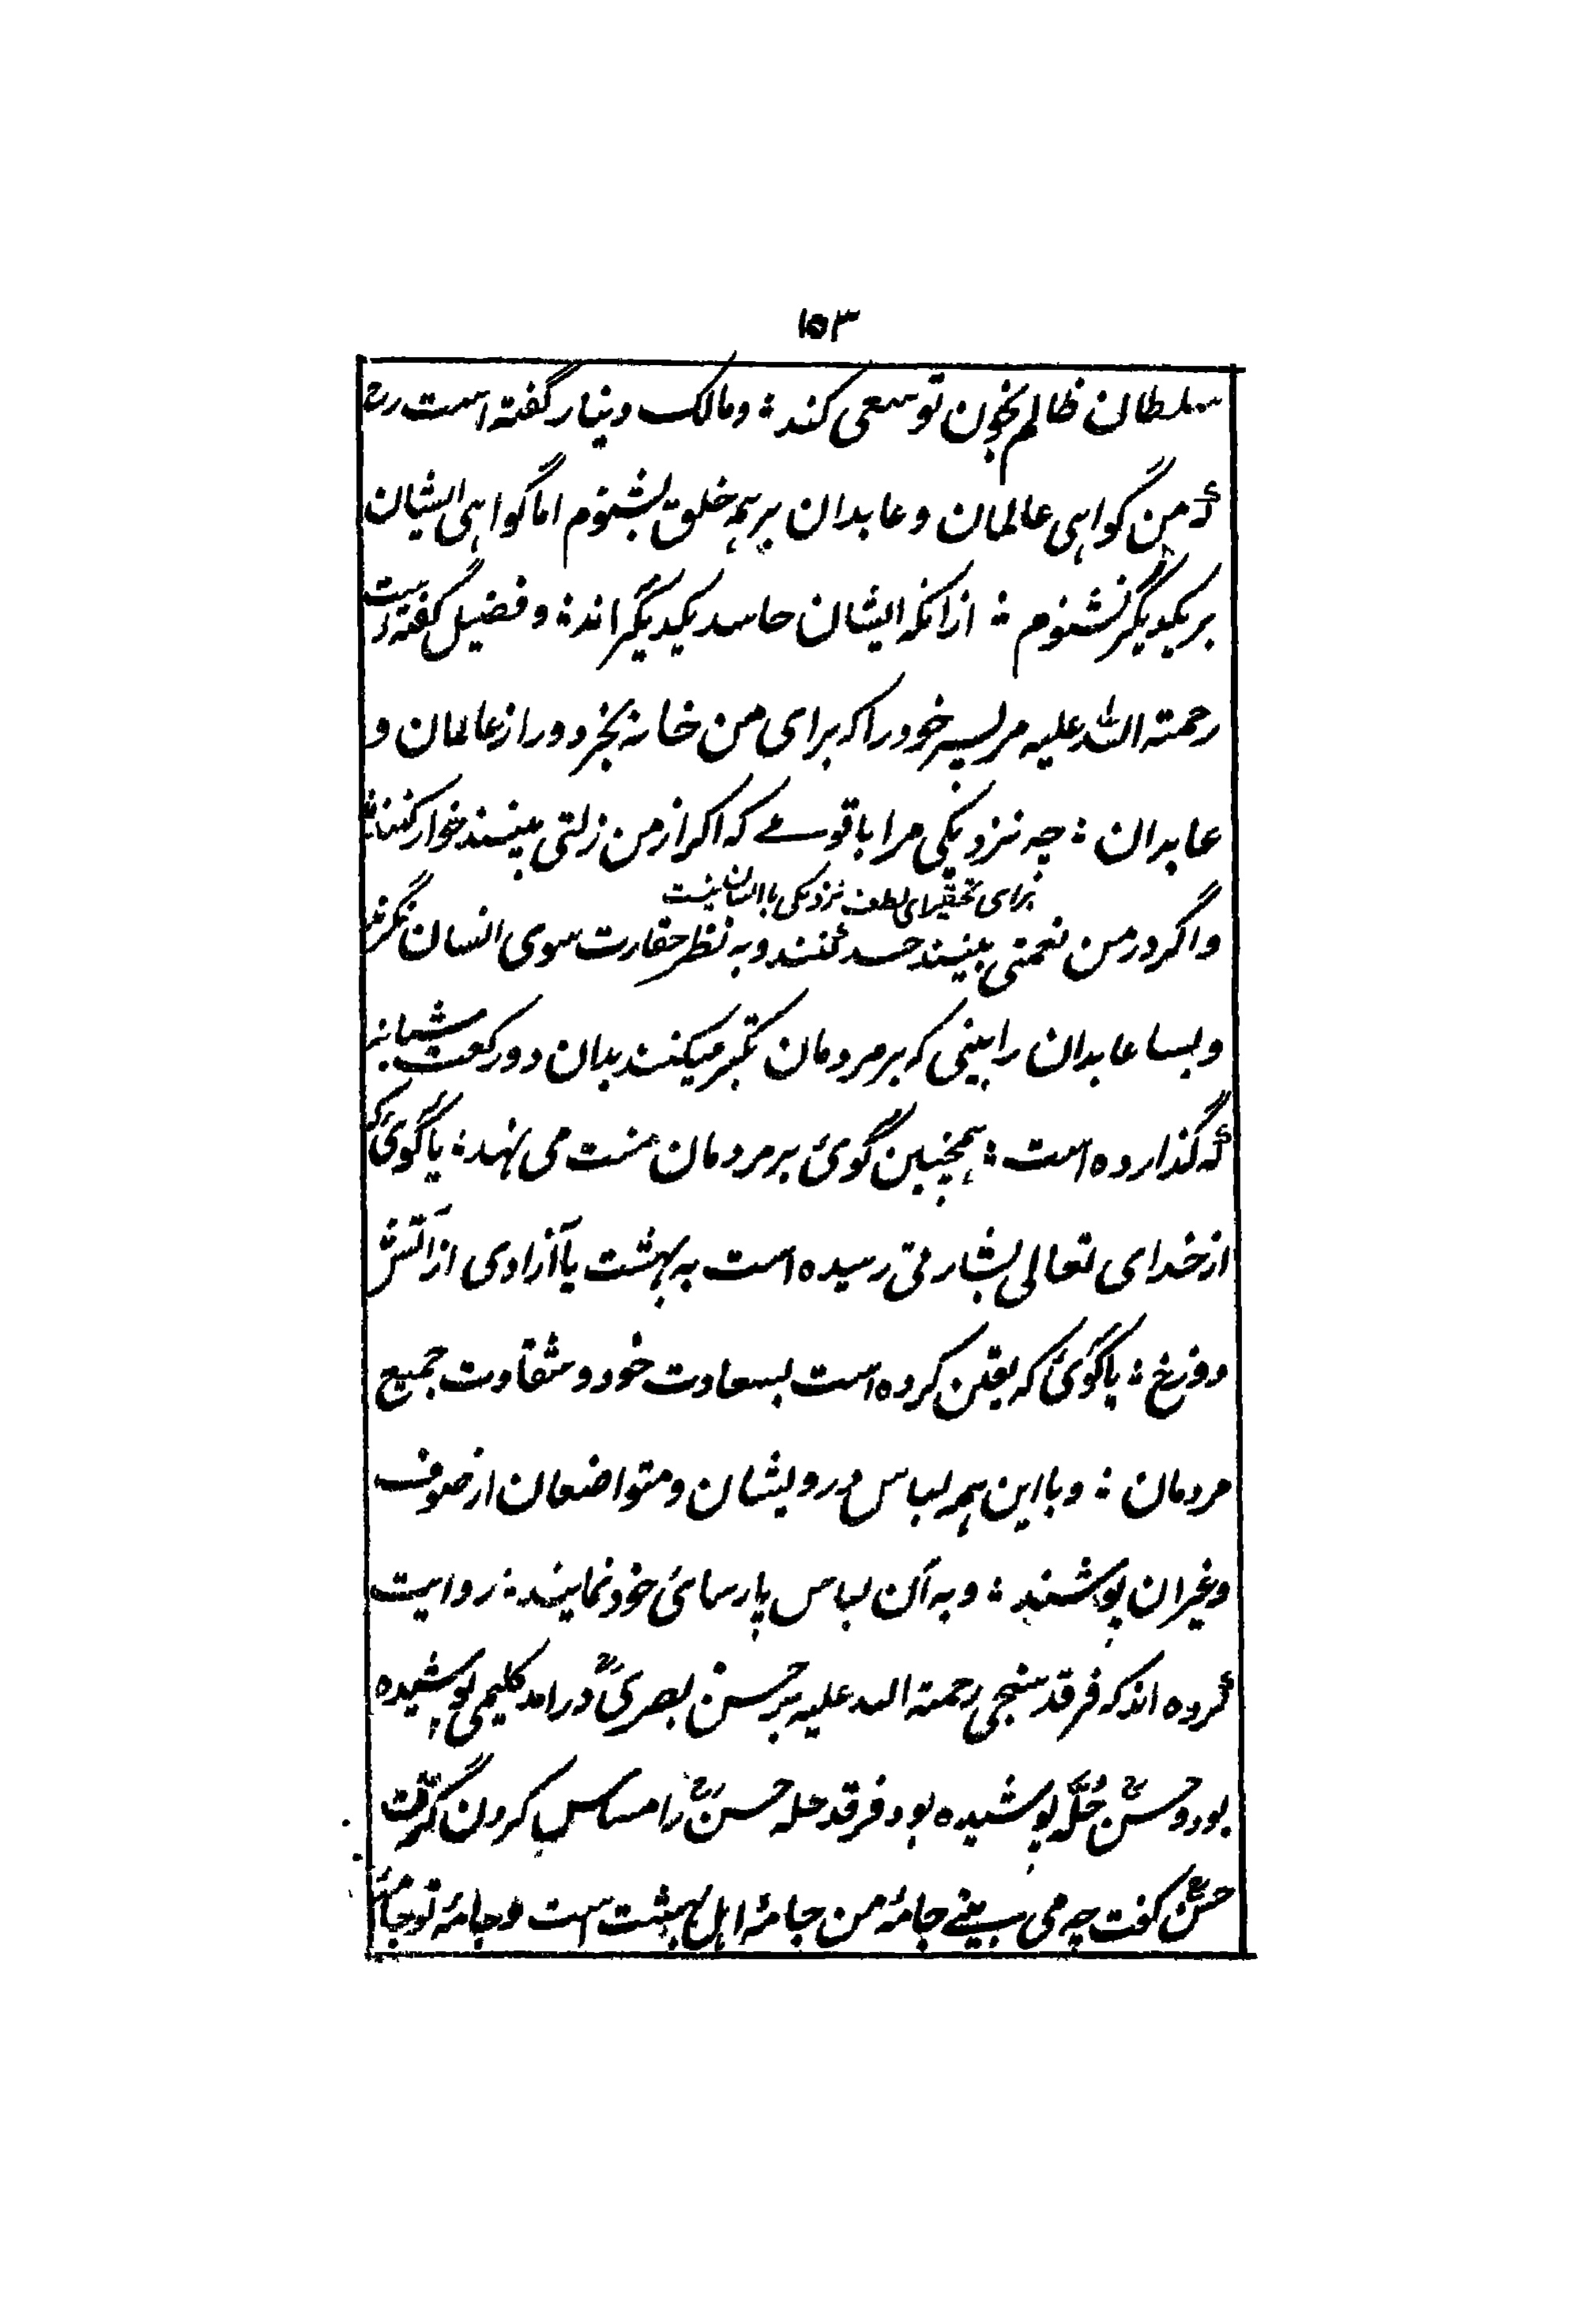 ۱۵۳
سلطان ظالم بخون تو سعی کند؛ و مالک دینار گفته است رح
که من گواهی عالمان و عابدان بر همه خلق بشنوم اما گواهی ایشان
بر یکدیگر نشنوم ؛ ازانکه ایشان حاسد یکدیگر اند؛ و فضیل گفته است
رحمته الله علیه مر پسر خود را که برای من خانه بخر دور از عالمان و
عابدان ؛ چه نزدیکی مرا با قومے که اگر از من زلتی بینند خوار کنند
برای تحقیر ای لطف نزدیکی با ایشان نیست
و اگر در من نعمتی بینند حسد کنند و به نظر حقارت سوی انسان نگرند
و بسا عابدان را بینی که بر مردمان تکبر میکنند بدان دو رکعت شبانه
که گذارده است ؛ همچنین گوئ بر مردمان منت می نهد؛ یا گوئ که
از خدای تعالی بشارتی رسیده است به بهشت یا آزادی از آتش
دوزخ ؛ یا گوئ که یقین کرده است بسعادت خود و شقاوت جمیع
مردمان ؛ و با این همه لباس درویشان و متواضعان از صوف
و غیر ان پوشند ؛ و به آن لباس پارسائ خود نمایند ؛ روایت
کرده اند که فرقد سنجی رحمته الله علیه بر حسن بصری رح درامد گلیمی پوشیده
بود و حسن رح حُلّه پوشیده بود فرقد حله حسن رح را مساس کردن گرفت
حسن رح گفت چه می بینے جامۂ من جامۂ اهل بهشت است و جامۂ تو جامۂ